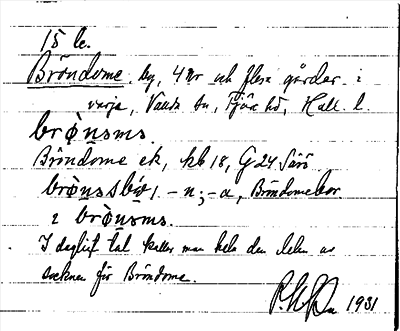 15 le.
Bröndome, by, 4 nr och flera gårdar i
Varje, Vallda sn, Fjäre hd, Hall. l.
brø̀nsms.
Bröndome ek, kbl 18, G 24 Särö
brø̀nssbǿ, -n; -a, Bröndomebor
i brø̀nsms.
I dagligt tal kallar man hela den delen av
socknen för Bröndome.
1931